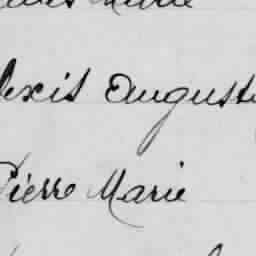 Marie
lexis Auguste
Pierre Marie